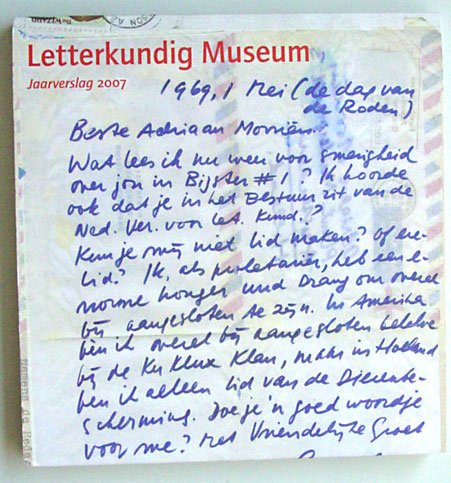 Letterkundig Museum
Jaarverslag 2007
1969, 1 Mei (de dag van
de Roden)
Beste Adriaan Morriën.
Wat lees ik nu weer voor smerigheid
over jou in Bijster #1? Ik hoorde
ook dat je in het Bestuur zit van de
Ned. Ver. voor Let. Kund.?
Kun je mij niet lid maken? Of ere-
lid? Ik, als proletariër, heb een e-
norme honger und Drang om overal
bij aangesloten te zijn. In Amerika
ben ik overal bij aangesloten behalve
bij de Ku Klux Klan, maar in Holland
ben ik alleen lid van de Dierenbe-
scherming. Doe je 'n goed woordje
voor me? Met Vriendelijke Groet